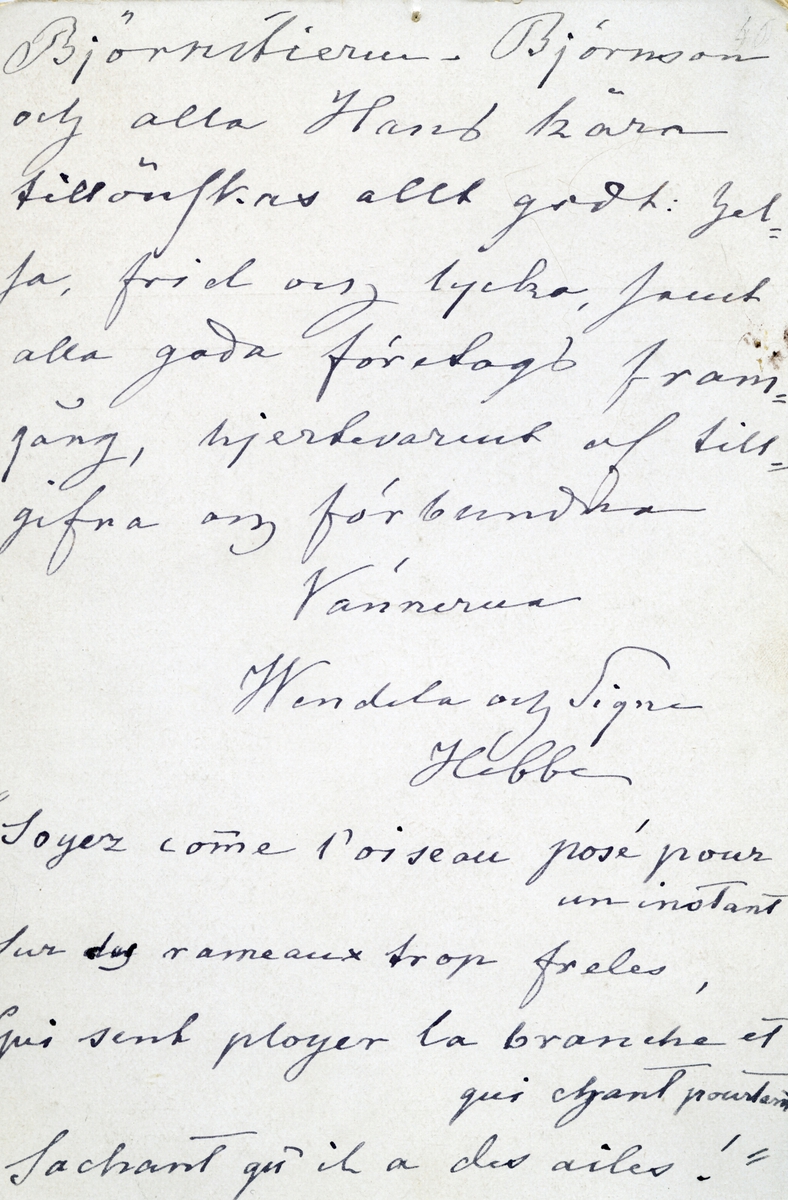 Björnstierne-Björnson
och alla Hans kära
tillönskas allt godt: hel=
sa, frid och lycka, samt
alla goda företags fram=
gång, hjertevarmt af till=
gifna och förbundna
Vännerna
Wendela och Signe
Hebbe
"Soyez com̄e l'oiseau posé pour
un instant
Sur des rameaux trop freles,
Qui sent ployer la branche et
qui chant pourtant
Sachant qu'il a des ailes!"